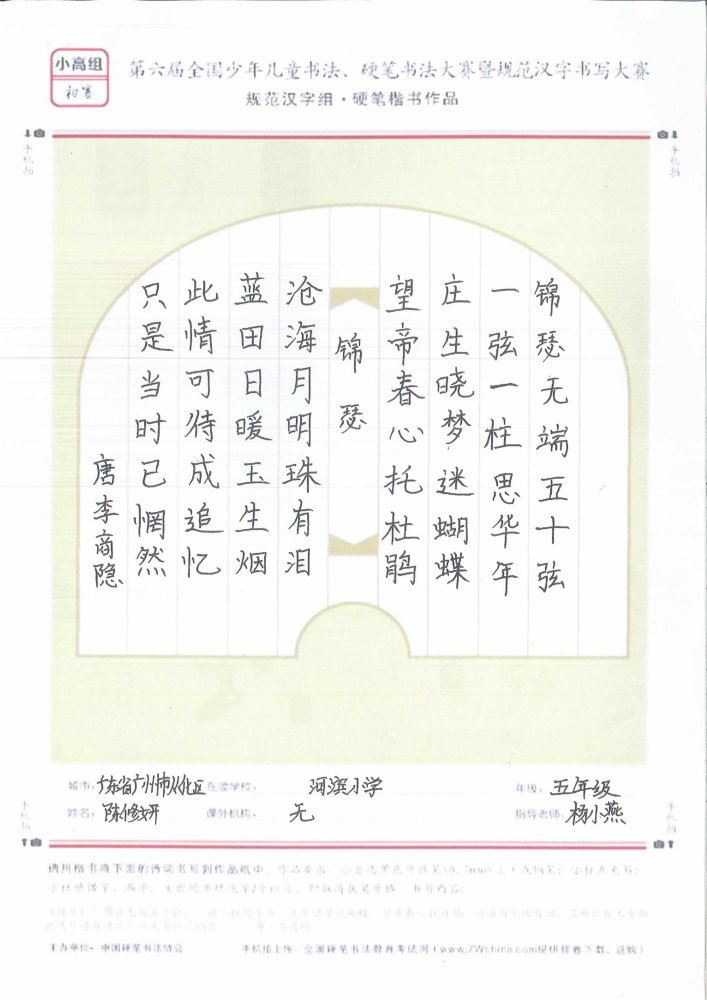 小高组
初赛
第六届全国少年儿童书法、硬笔书法大赛暨规范汉字书写大赛
规范汉字组·硬笔楷书作品
手机拍
手机拍
锦瑟无端五十弦
一弦一柱思华年
庄生晓梦迷蝴蝶
望帝春心托杜鹃
锦瑟
沧海月明珠有泪
蓝田日暖玉生烟
此情可待成追忆
只是当时已惘然
唐李商隐
城市：广东省广州市从化区 在读学校： 河滨小学 年级：五年级
姓名：陈修妍 课外机构： 无 指导老师：杨小燕
手机拍
手机拍
请用楷书将下面的诗词书写到作品纸中。作品要求：
书写内容：
主办单位：中国硬笔书法协会 手机拍上传：全国硬笔书法教育考试网（www.7Wchina.com提供样卷下载、选购）